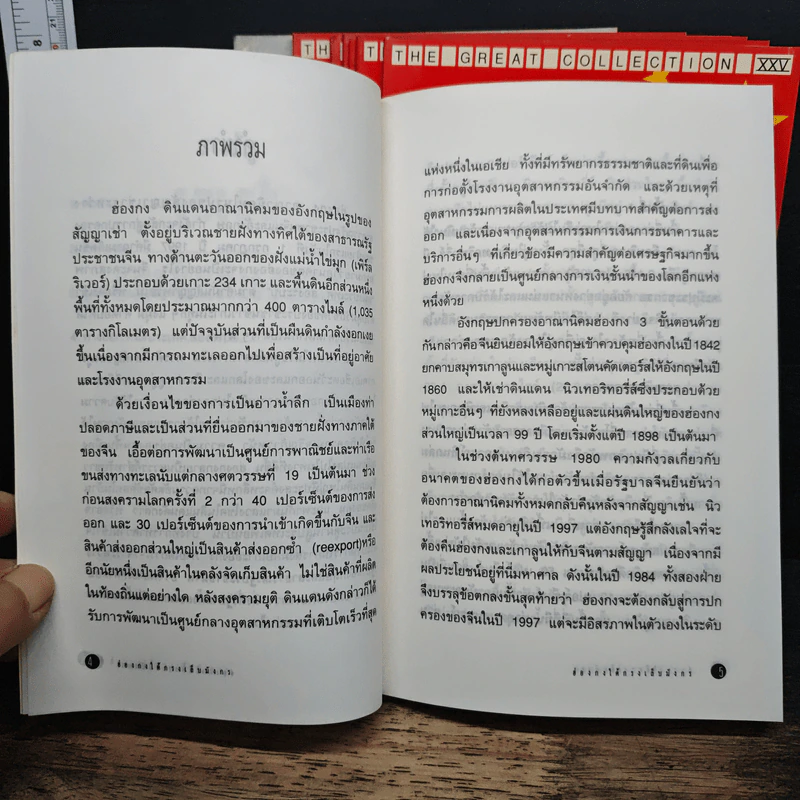 8
21
TH
T
THE GREAT COLLECTION XXV
ภาพรวม
ฮ่องกง ดินแดนอาณานิคมของอังกฤษในรูปของ
สัญญาเช่า ตั้งอยู่บริเวณชายฝั่งทางทิศใต้ของสาธารณรัฐ
ประชาชนจีน ทางด้านตะวันออกของฝั่งแม่น้ำไข่มุก (เพิร์ล
ริเวอร์) ประกอบด้วยเกาะ 234 เกาะ และพื้นดินอีกส่วนหนึ่ง
พื้นที่ทั้งหมดโดยประมาณมากกว่า 400 ตารางไมล์ (1,035
ตารางกิโลเมตร) แต่ปัจจุบันส่วนที่เป็นผืนดินกำลังงอกเงย
ขึ้นเนื่องจากมีการถมทะเลออกไปเพื่อสร้างเป็นที่อยู่อาศัย
และโรงงานอุตสาหกรรม
ด้วยเงื่อนไขของการเป็นอ่าวน้ำลึก เป็นเมืองท่า
ปลอดภาษีและเป็นส่วนที่ยื่นออกมาของชายฝั่งทางภาคใต้
ของจีน เอื้อต่อการพัฒนาเป็นศูนย์การพาณิชย์และท่าเรือ
ขนส่งทางทะเลนับแต่กลางศตวรรษที่ 19 เป็นต้นมา ช่วง
ก่อนสงครามโลกครั้งที่ 2 กว่า 40 เปอร์เซ็นต์ของการส่ง
ออก และ 30 เปอร์เซ็นต์ของการนำเข้าเกิดขึ้นกับจีน และ
สินค้าส่งออกส่วนใหญ่เป็นสินค้าส่งออกซ้ำ (reexport)หรือ
อีกนัยหนึ่งเป็นสินค้าในคลังจัดเก็บสินค้า ไม่ใช่สินค้าที่ผลิต
ในท้องถิ่นแต่อย่างใด หลังสงครามยุติ ดินแดนดังกล่าวก็ได้
รับการพัฒนาเป็นศูนย์กลางอุตสาหกรรมที่เติบโตเร็วที่สุด
4 ฮ่องกงใต้กรงเล็บมังกร
แห่งหนึ่งในเอเชีย ทั้งที่มีทรัพยากรธรรมชาติและที่ดินเพื่อ
การก่อตั้งโรงงานอุตสาหกรรมอันจำกัด และด้วยเหตุที่
อุตสาหกรรมการผลิตในประเทศมีบทบาทสำคัญต่อการส่ง
ออก และเนื่องจากอุตสาหกรรมการเงินการธนาคารและ
บริการอื่นๆ ที่เกี่ยวข้องมีความสำคัญต่อเศรษฐกิจมากขึ้น
ฮ่องกงจึงกลายเป็นศูนย์กลางการเงินชั้นนำของโลกอีกแห่ง
หนึ่งด้วย
อังกฤษปกครองอาณานิคมฮ่องกง 3 ขั้นตอนด้วย
กันกล่าวคือจีนยินยอมให้อังกฤษเข้าควบคุมฮ่องกงในปี 1842
ยกคาบสมุทรเกาลูนและหมู่เกาะสโตนคัตเตอร์สให้อังกฤษในปี
1860 และให้เช่าดินแดน นิวเทอริทอรี่ส์ซึ่งประกอบด้วย
หมู่เกาะอื่นๆ ที่ยังหลงเหลืออยู่และแผ่นดินใหญ่ของฮ่องกง
ส่วนใหญ่เป็นเวลา 99 ปี โดยเริ่มตั้งแต่ปี 1898 เป็นต้นมา
ในช่วงต้นทศวรรษ 1980 ความกังวลเกี่ยวกับ
อนาคตของฮ่องกงได้ก่อตัวขึ้นเมื่อรัฐบาลจีนยืนยันว่า
ต้องการอาณานิคมทั้งหมดกลับคืนหลังจากสัญญาเช่น นิว
เทอริทอรี่ส์หมดอายุในปี 1997 แต่อังกฤษรู้สึกลังเลใจที่จะ
ต้องคืนฮ่องกงและเกาลูนให้กับจีนตามสัญญา เนื่องจากมี
ผลประโยชน์อยู่ที่นี่มหาศาล ดังนั้นในปี 1984 ทั้งสองฝ่าย
จึงบรรลุข้อตกลงขั้นสุดท้ายว่า ฮ่องกงจะต้องกลับสู่การปก
ครองของจีนในปี 1997 แต่จะมีอิสรภาพในตัวเองในระดับ
ฮ่องกงใต้กรงเล็บมังกร 5